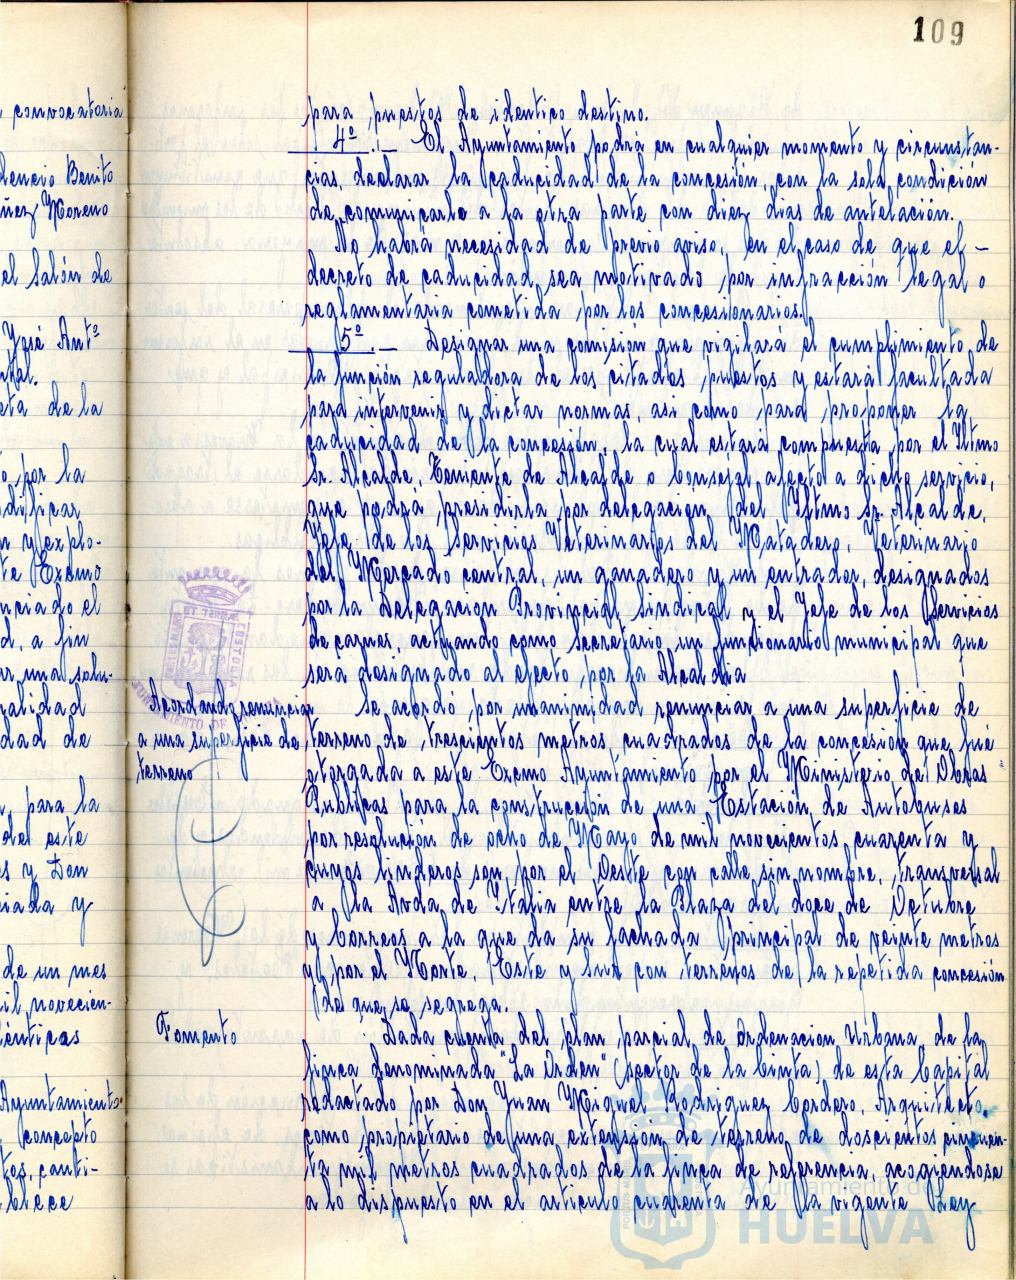 109
convocatoria
dencio Benito
ñez Moreno
el Salón de
José Antº
eta de la
o por la
dificar
n y explo-
te Excmo
nciado el
d, a fin
ar una solu-
ralidad
dad de
, para la
de este
s y Don
ciada y
de un mes
il novecien-
énticas
Ayuntamiento
concepto
tos, canti-
blece
para puestos de identico destino.
4º. El Ayuntamiento podrá en cualquier momento y circunstan-
cias declarar la caducidad de la concesión, con la sola condición
de comunicarlo a la otra parte con diez dias de antelación.
No habrá necesidad de previo aviso, en el caso de que el -
decreto de caducidad sea motivado por infracción legal o
reglamentaria cometida por los concesionarios.
5º. Designar una comisión que vigilará el cumplimiento de
la función reguladora de los citados puestos y estará facultada
para intervenir y dictar normas, asi como para proponer la
caducidad de la concesión, la cual estará compuesta por el Iltmo
Sr. Alcalde, Teniente de Alcalde o Concejal afecto a dicho servicio,
que podrá presidirla por delegacion del Iltmo Sr. Alcalde,
Jefe de los Servicios Veterinarios del Matadero, Veterinario
del Mercado central, un ganadero y un entrador, designados
por la Delegacion Provincial Sindical y el Jefe de los Servicios
de carnes, actuando como Secretario un funcionario municipal que
sera designado al efecto por la Alcaldia
Acordando renunciar
a una superficie de
terreno
Se acordó por unanimidad renunciar a una superficie de
terreno de trescientos metros cuadrados de la concesión que fué
otorgada a este Excmo Ayuntamiento por el Ministerio de Obras
Publicas para la construcción de una Estación de Autobuses
por resolución de ocho de Mayo de mil novecientos cuarenta y
cuyos linderos son, por el Oeste con calle sin nombre, transversal
a la Avda de Italia entre la Plaza del doce de Octubre
y Correos a la que da su fachada principal de veinte metros
y por el Norte, Este y Sur con terrenos de la repetida concesión
de que se segrega.
Fomento
Dada cuenta del plan parcial de Ordenacion Urbana de la
finca denominada "La Orden" (sector de la Cinta) de esta Capital
redactado por Don Juan Miguel Rodriguez Cordero, Arquitecto,
como propietario de una extension de terreno de doscientos cincuen-
ta mil metros cuadrados de la finca de referencia, acogiendose
a lo dispuesto en el articulo cuarenta de la vigente Ley
Ayuntamiento de
HUELVA